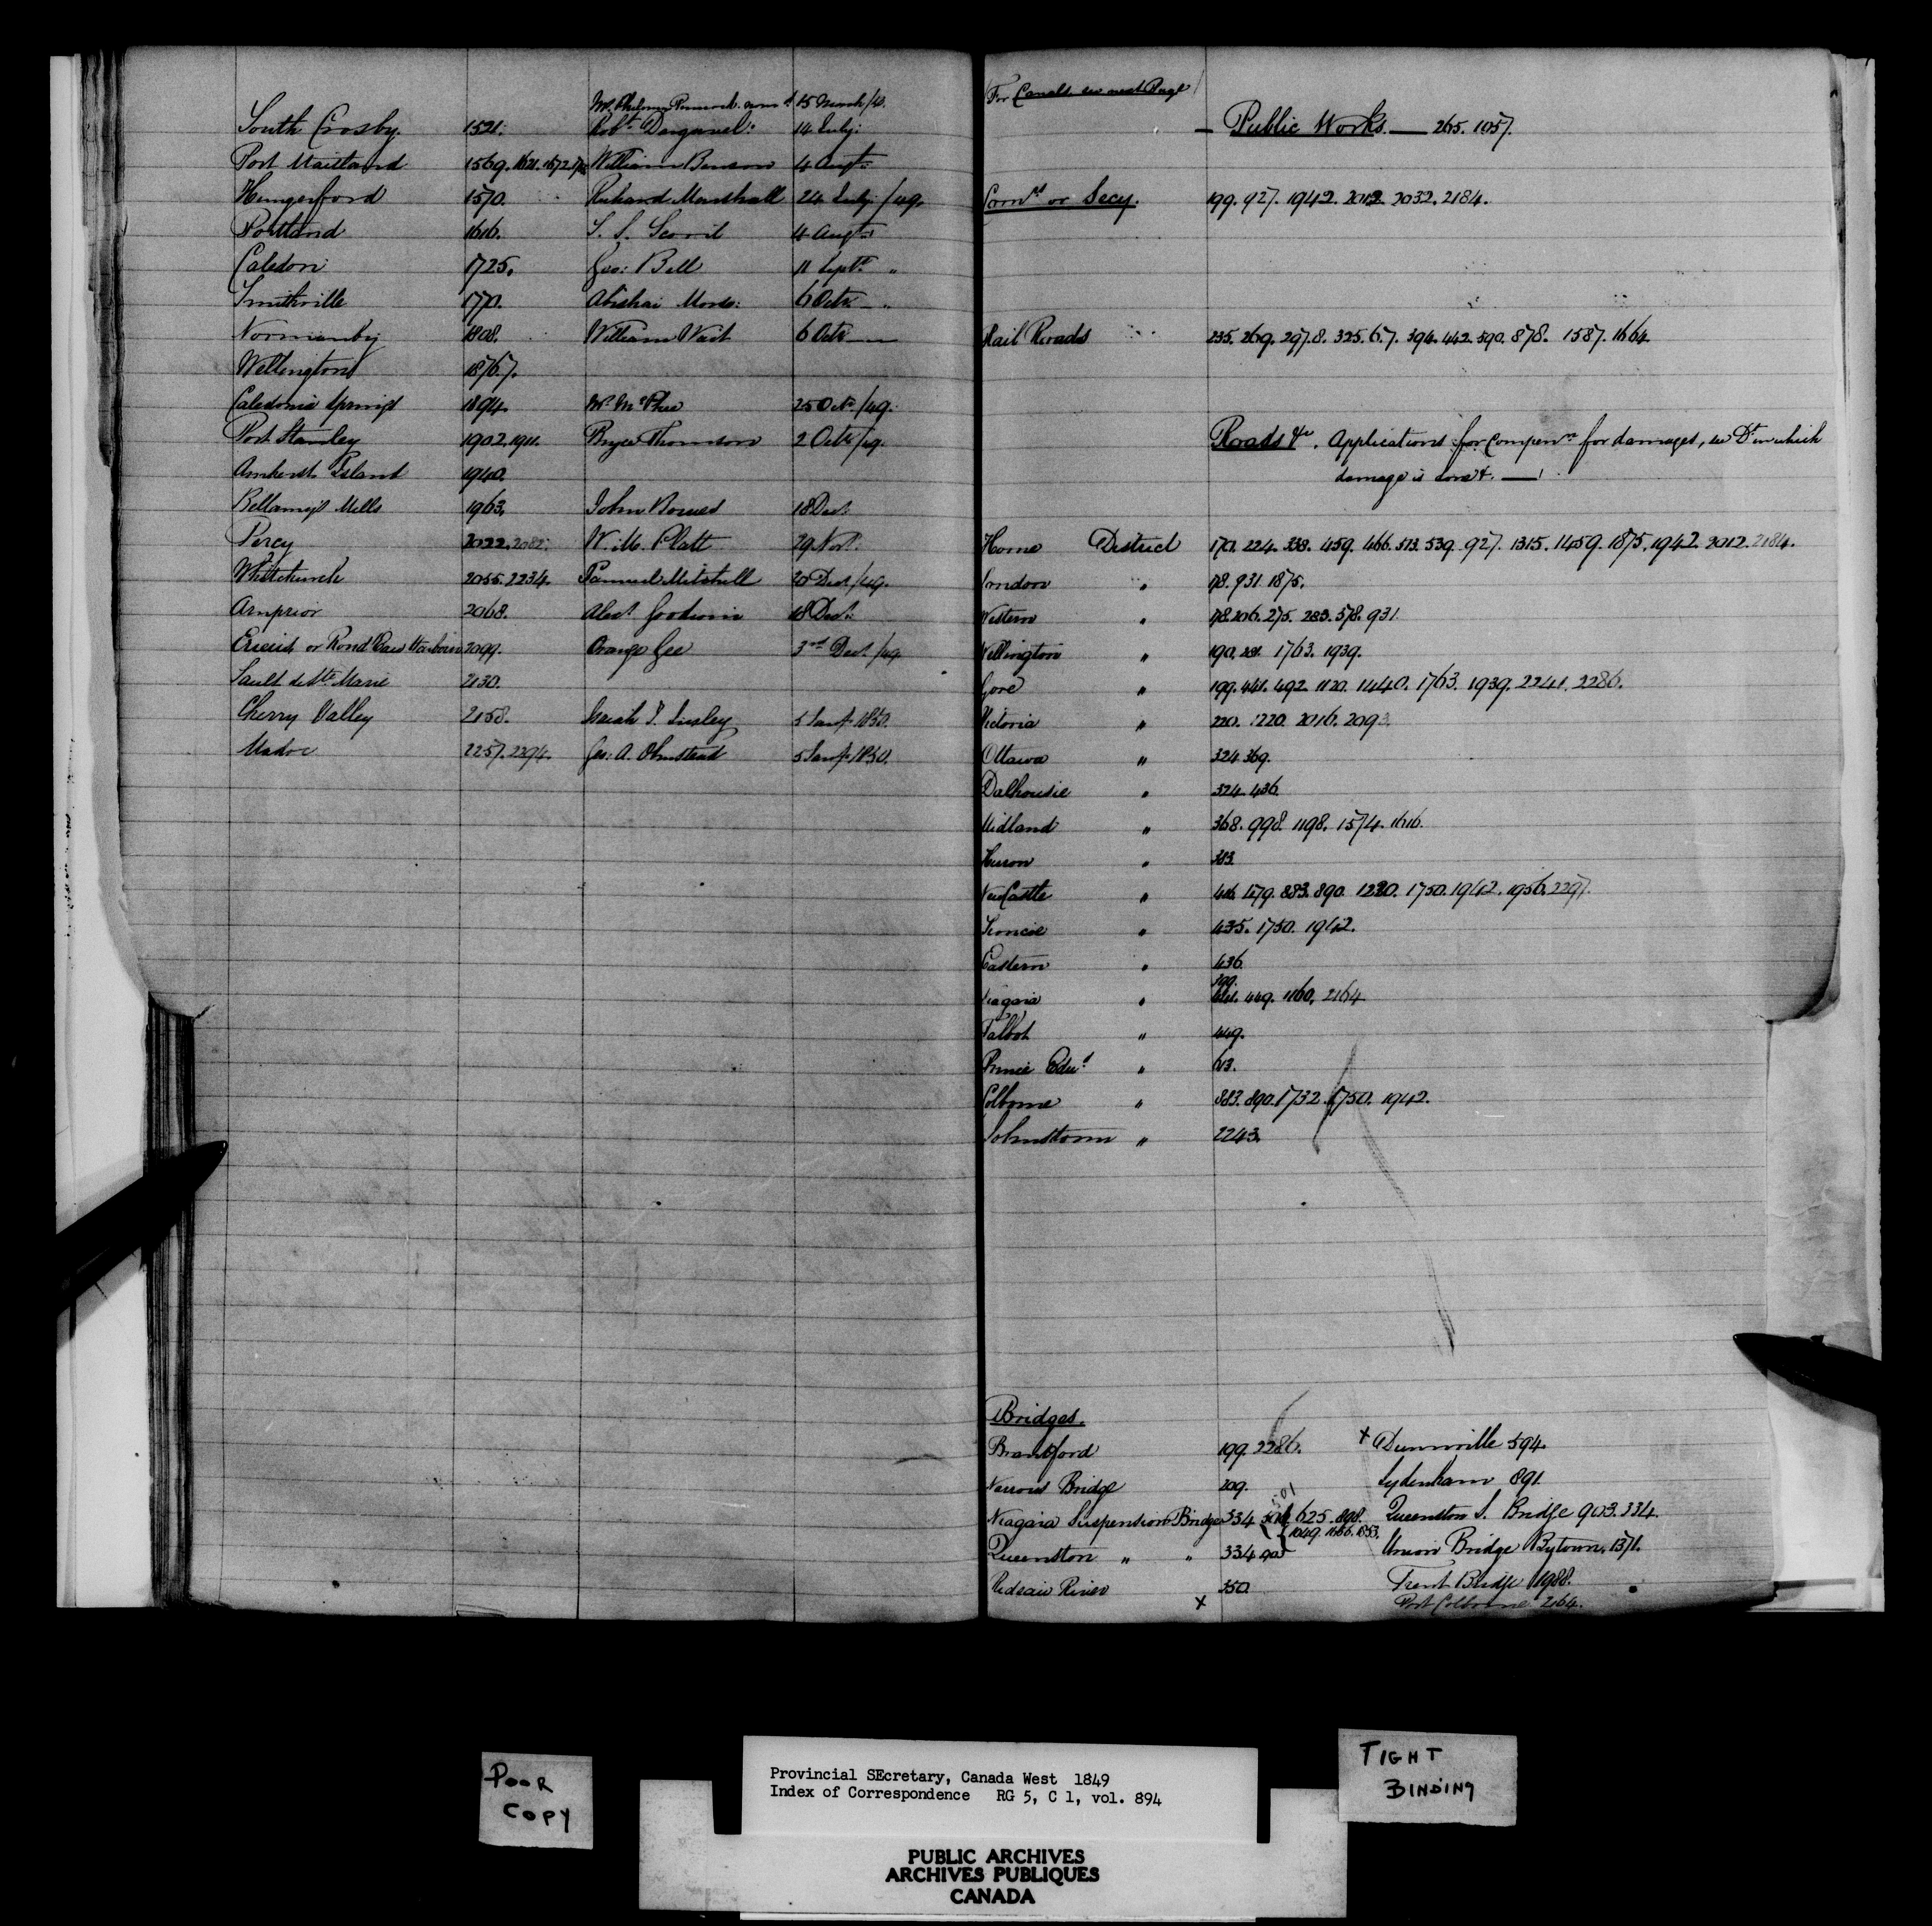 15 March /49.
South Crosby. 1521. Robt. Dargavel. 14 July.
Port Maitland 1569. 1621. 1672. William Benson 4 Augt.
Hungerford 1570. Richard Marshall 24 July /49.
Portland 1616. S. S. Scovil 4 Augt.
Caledon 1725. Geo: Bell 11 Sept. "
Smithville 1770. Abishai Morse: 6 Octr. "
Normanby 1808. William Wait 6 Octr —
Wellington 1876.7.
Caledonia Springs 1894. Mr. McPhee 25 Octr. /49.
Port Stanley 1902. 1911. Bryce Thomson 2 Octr /49.
Amherst Island 1940.
Bellamy's Mills 1963. John Bowes 18 Dect.
Percy 2022. 2082. W. M. Platt 29 Novr.
Whitchurch 2055. 2234. Samuel Mitchell 20 Dect /49.
Arnprior 2068. Alexr. Goodwin 18 Dect.
or Rond Eau Harbour 2099. Orange Gee 3rd Dect. /49
Sault de Ste Marie 2130.
Cherry Valley 2158. Insley 5 Jany. 1850.
Madoc 2257. 2294. Geo: A. Olmstead 5 Jany. 1850.
For Canals see next Page
— Public Works. — 265. 1057.
Comrs or Secy. 199. 927. 1942. 2012. 2032. 2184.
Rail Roads 235. 269. 297.8. 325.6.7. 394. 442. 590. 878. 1587. 1664.
Roads &c. Applications for Compenn for damages, see Dt in which
damage is done &. —
Home District 170. 224. 338. 459. 466. 513. 539. 927. 1315. 1459. 1875. 1942. 2012. 2184.
London " 178. 931. 1875.
Western " 178. 206. 275. 283. 578. 931.
Wellington " 190. 281. 1763. 1939.
Gore " 199. 441. 492. 1120. 1440. 1763. 1939. 2241. 2286.
Victoria " 220. 1220. 2016. 2093.
Ottawa " 324. 369.
Dalhousie " 324. 436.
Midland " 368. 998. 1198. 1574. 1616.
Huron " 383.
NewCastle " 416. 479. 883. 890. 1220. 1750. 1942. 1956. 2297.
Simcoe " 435. 1750. 1942.
Eastern " 436.
199.
Niagara " 441. 449. 1160. 2164
Talbot " 449.
Prince Edwd " 613.
Colborne " 883. 890. 1732. 1750. 1942.
Johnstown " 2243.
Bridges.
Brantford 199. 2286. x Dunnville 594.
Narrows Bridge 209. Sydenham 891.
Niagara Suspension Bridge 334 501 625. 898. Queenston S. Bridge 903. 334.
1049. 1686. 1853.
Queenston " " 334 903 Union Bridge Bytown. 1371.
Rideau River 350. Trent Bridge 1988.
x Port Colborne 2164.
POOR
COPY
Provincial SEcretary, Canada West 1849
Index of Correspondence RG 5, C 1, vol. 894
TIGHT
BINDING
PUBLIC ARCHIVES
ARCHIVES PUBLIQUES
CANADA